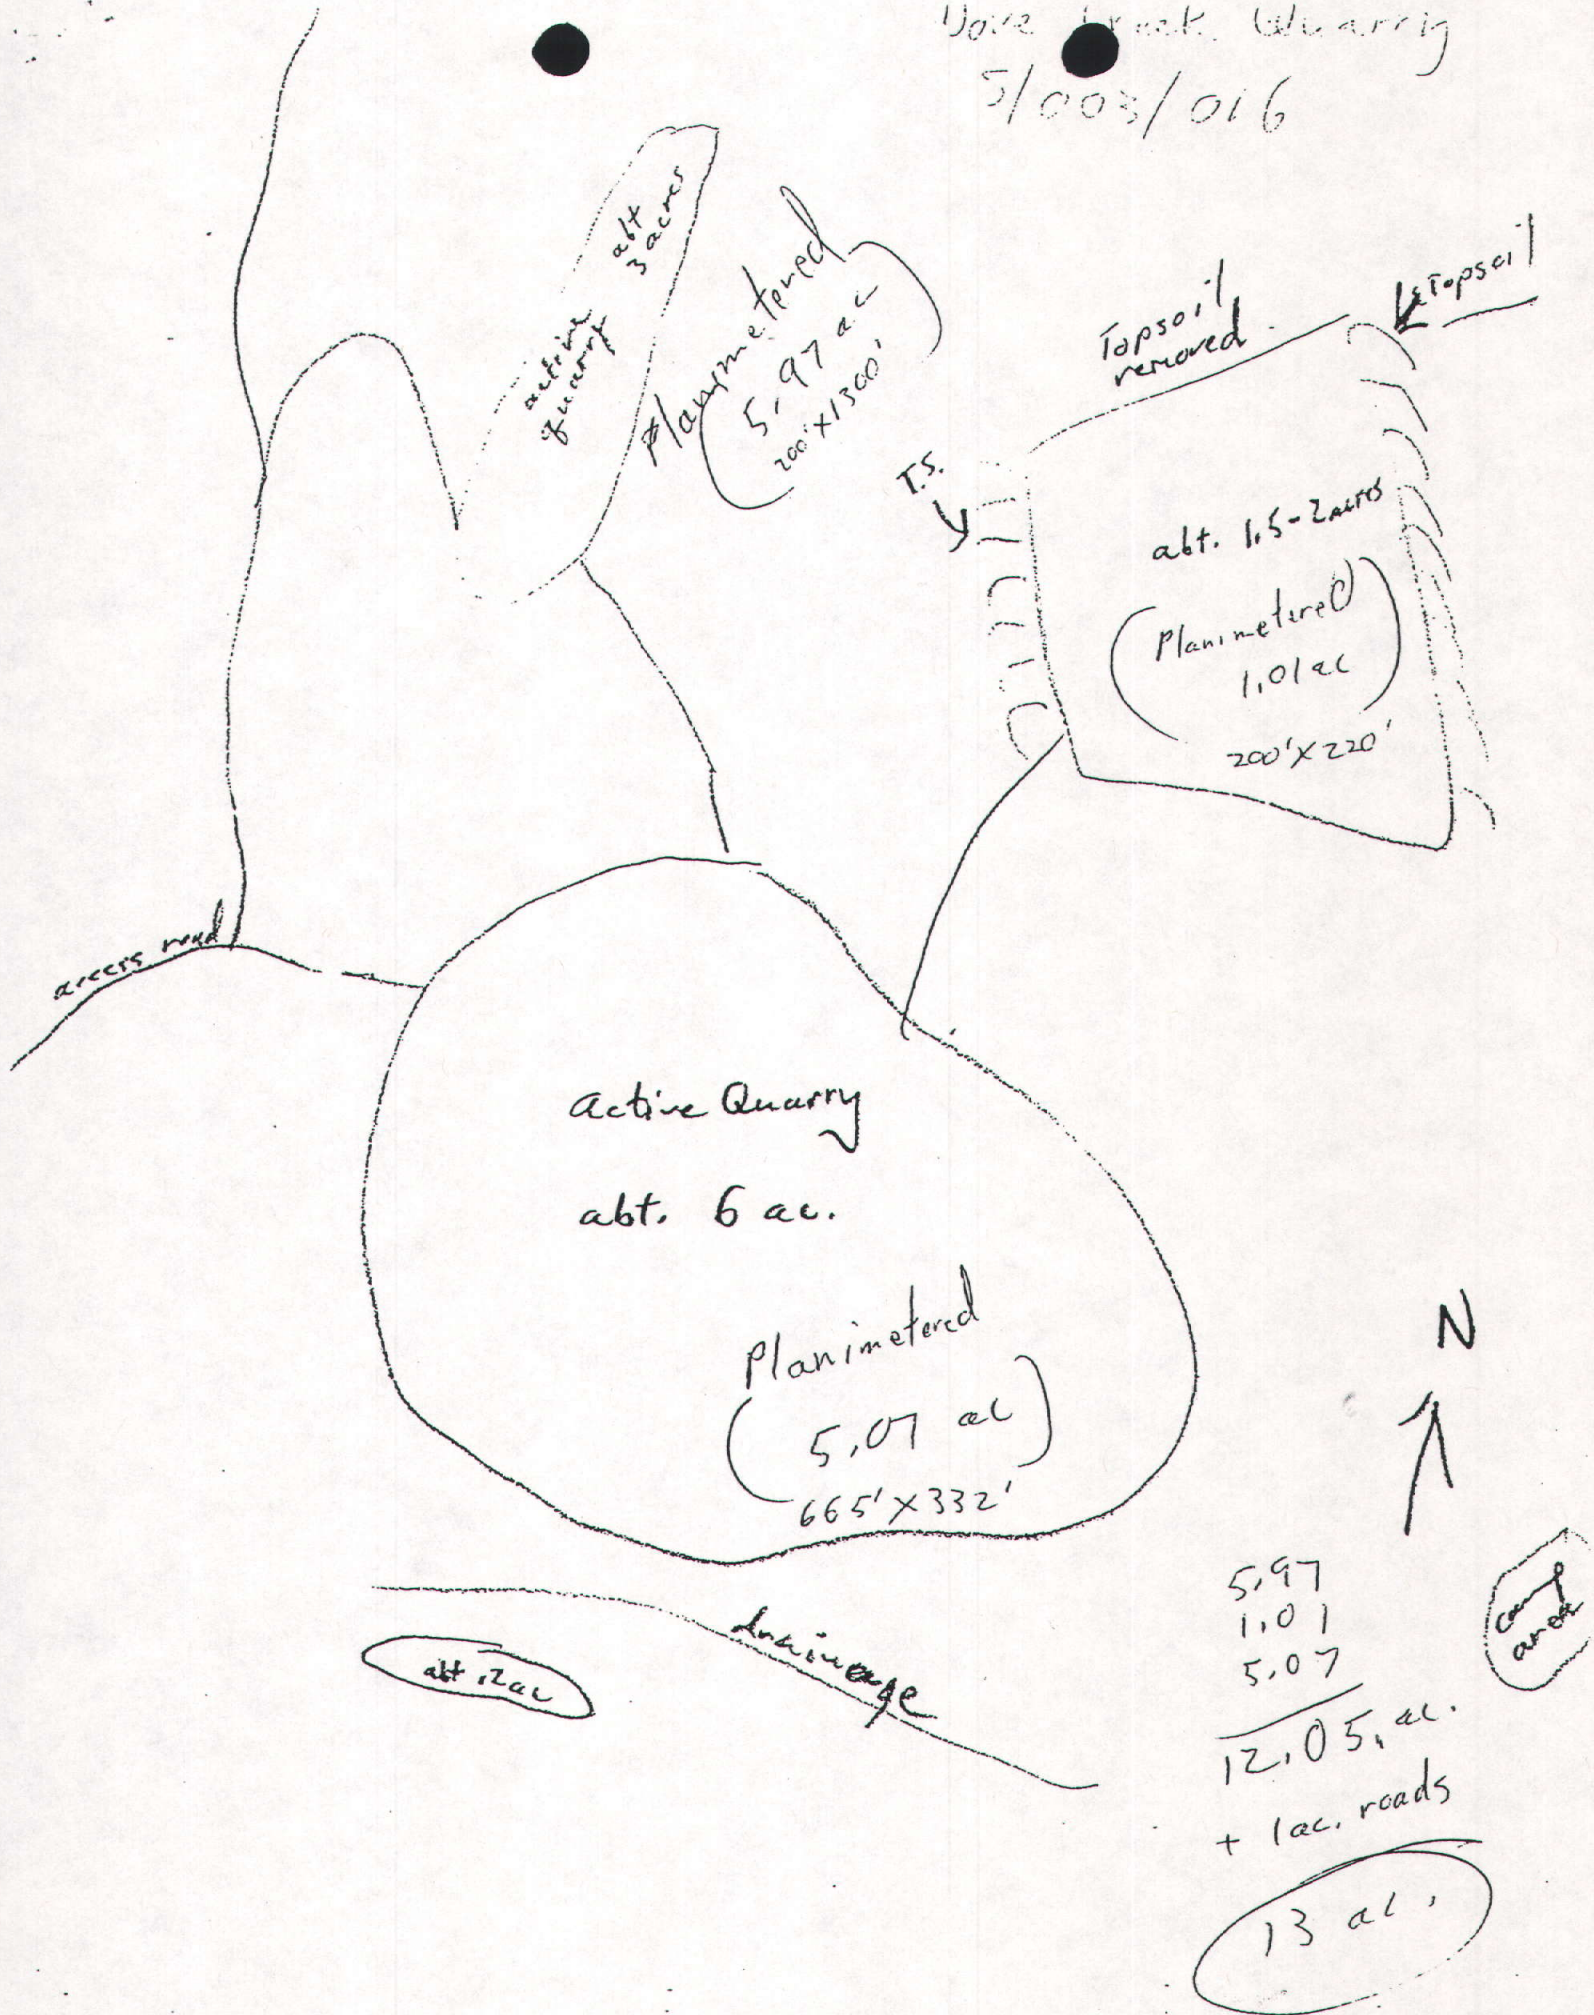 Dove Creek Quarry
5/003/016
abt
3 acres
active
quarry
Planimetered
5.97 ac
200'x1300'
Topsoil
removed
Topsoil
T.S.
abt. 1.5-2 acres
Planimetered
1.01 ac
200'x220'
access road
active Quarry
abt. 6 ac.
Planimetered
5.07 ac
665'x332'
N
camp
area
drainage
abt .2 ac
5.97
1.01
5.07
12.05 ac.
+ 1 ac. roads
13 ac.